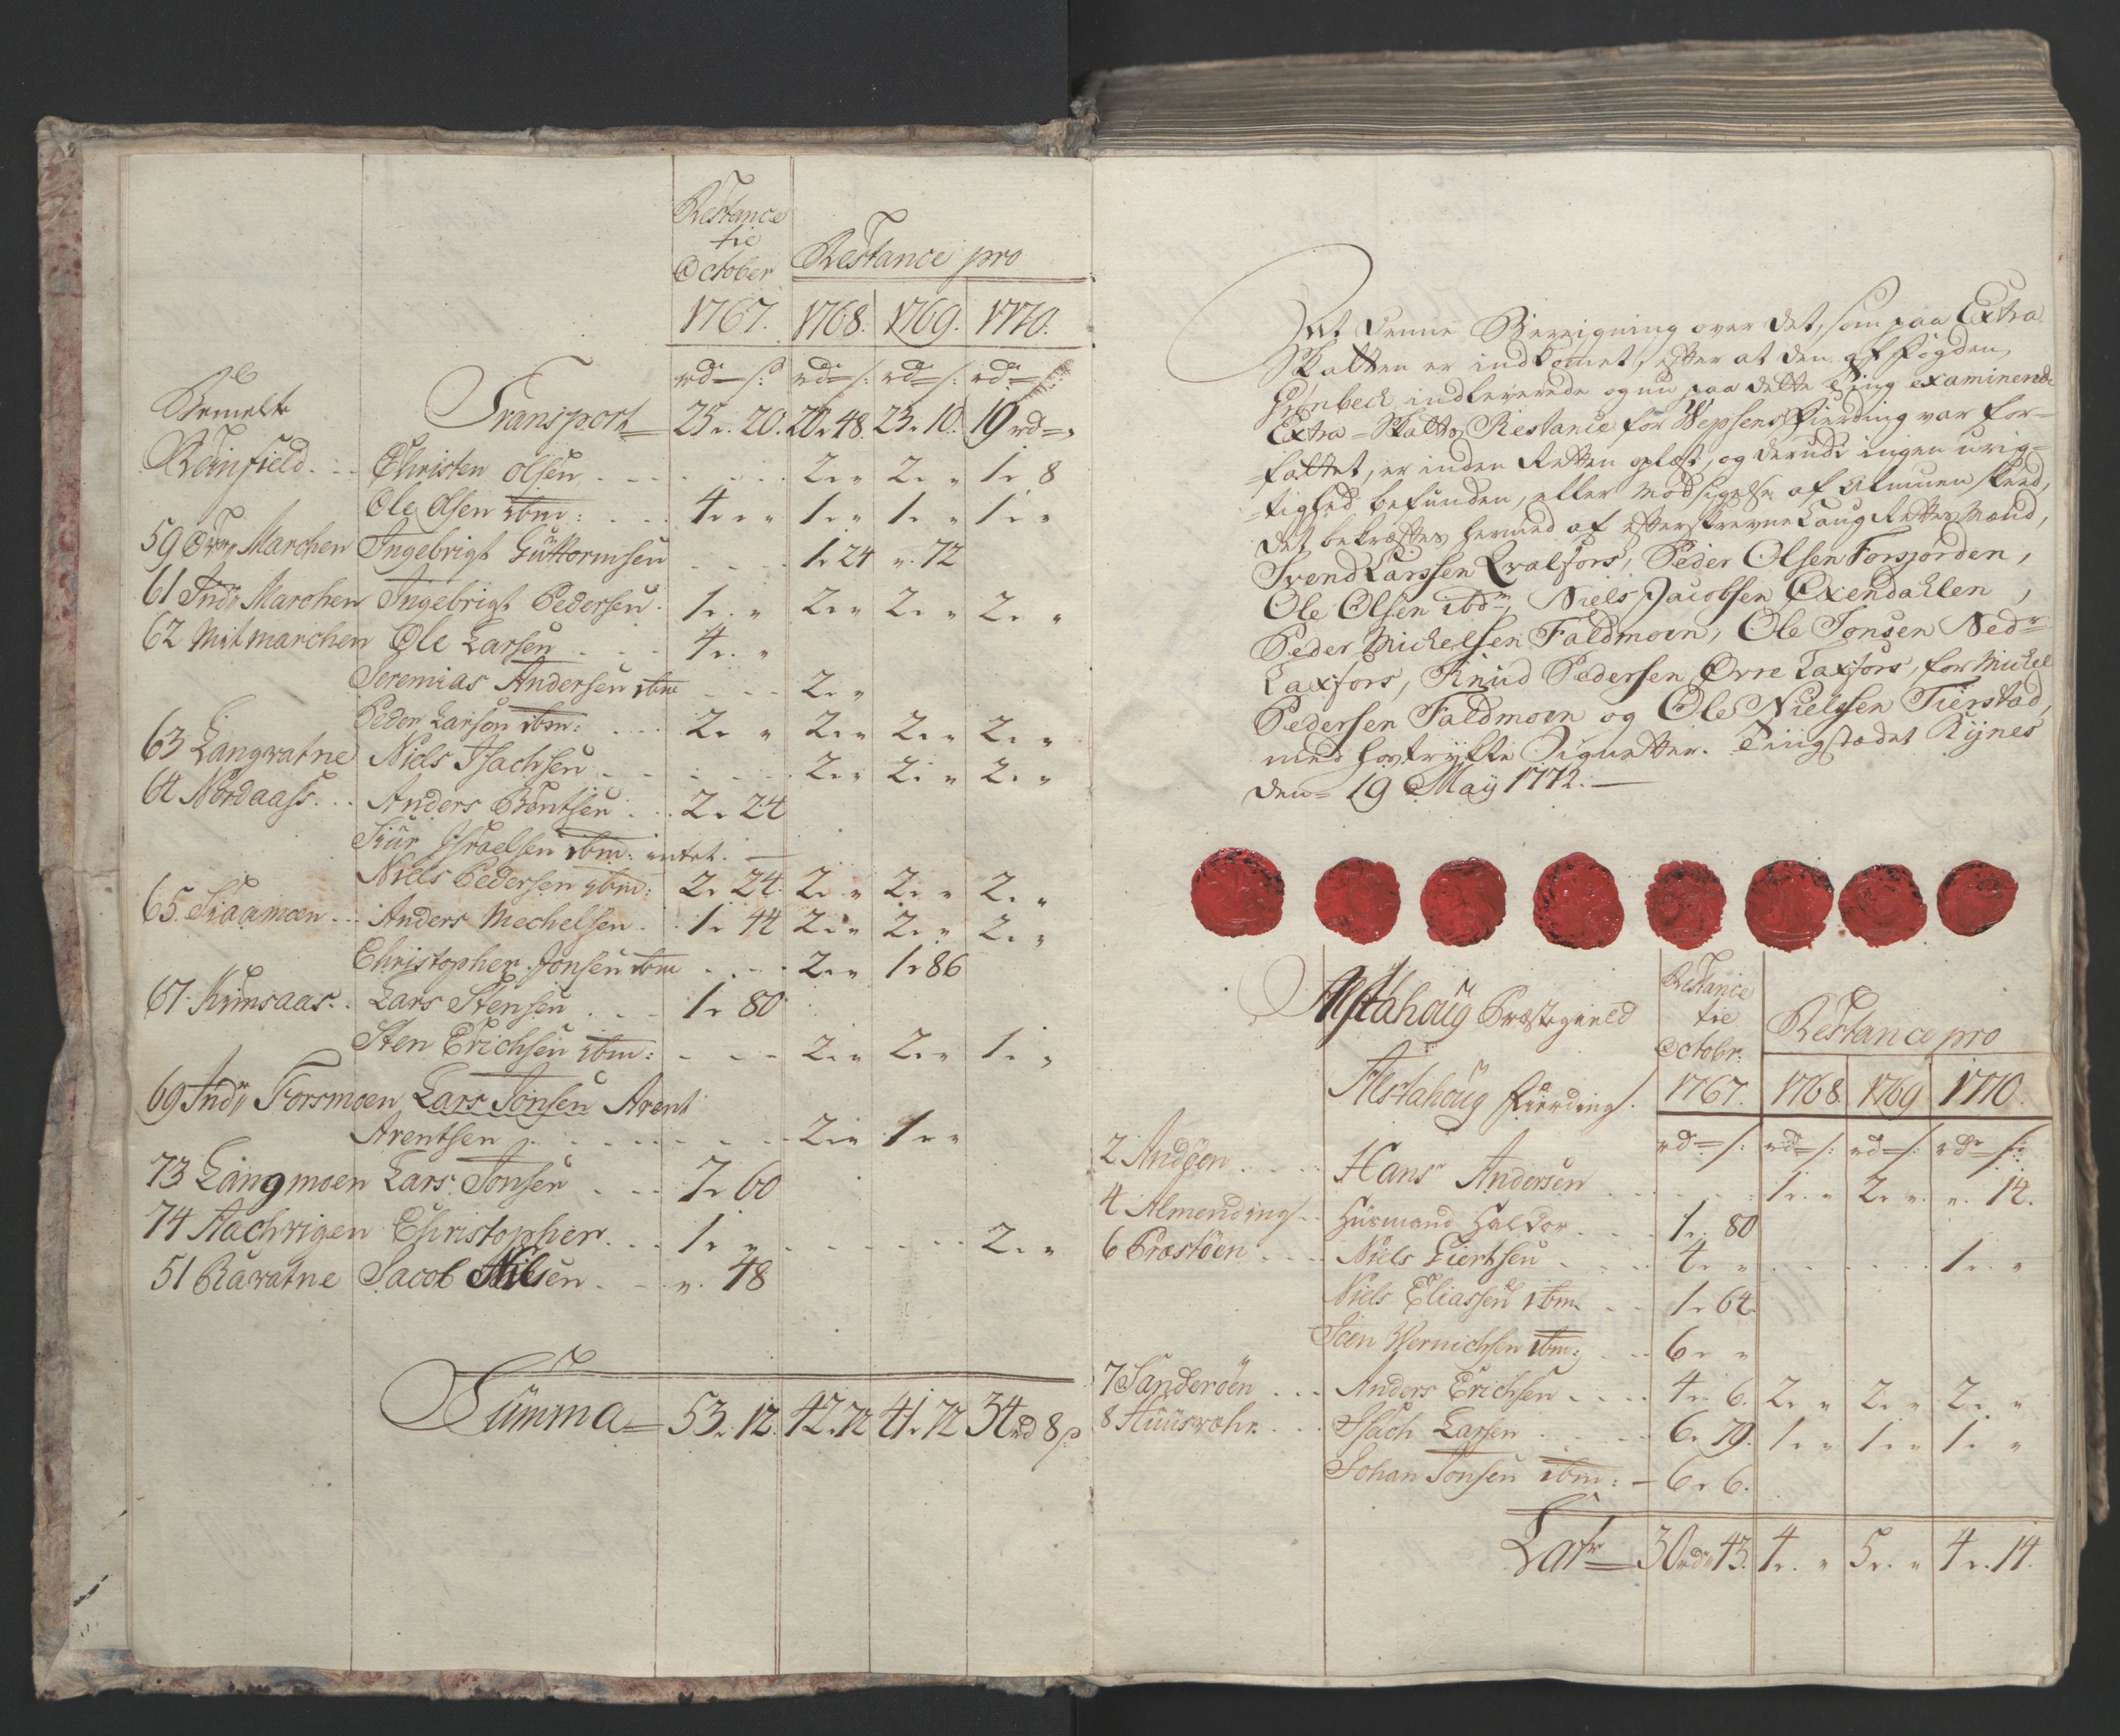 Restance
tie
October
Restance pro
1767. 1768. 1769. 1770.
rd s: rd s: rd s: rd s:
Bemelte Transport 25 r. 20. 20 r 48. 23 r. 10. 19 rd "
Reinfield Christen Olsen 2 r " 2 r " 1 r 8
Ole Olsen ibm: 4 r " 1 r " 1 r " 1 r "
59 Øvr Marchen Ingebrigt Guttormsen 1 r 24 " r. 72
61 Indr Marchen Ingebrigt Pedersen 1 r. " 2 r " 2 r " 2 r "
62 Mitmarchen Ole Larsen 4 r. "
Jeremias Andersen ibm 2 r "
Peder Larsen ibm: 2 r " 2 r " 2 r " 2 r "
63 Langvatne Niels Isachsen 2 r " 2 r " 2 r "
64 Nordaass Anders Bentsen 2 r 24
Siur Israelsen ibm: intet.
Niels Pedersen ibm: 2 r 24. 2 r " 2 r " 2 r "
65. Siaamoen Anders Mechelsen 1 r 44 2 r " 2 r " 2 r "
Christopher Jonsen ibm 2 r " 1 r 86
67. Kimsaas Lars Stensen 1 r 80
Sten Erichsen ibm: 2 r " 2 r " 1 r "
69 Indr Forsmoen Lars Jonsen Arent
Arentsen 2 r " 1 r "
73 Langmoen Lars Jonsen 7 r 60
74 Aachvigen Christopher 1 r " 2 r "
51 Råvatne Jacob Nilsen " 48
Summa 53 r. 12. 42 r 72 41 r 72 34 rd 8 s
At denne Beregning over det, som paa Extra
Skatten er indkomet, efter at den af Fogden,
indleverede og nu paa dette Ting examinerede
Extra-Skatts Restance for Wepsens Fierding var for-
fattet, er inden Retten oplæst, og derudi ingen urig-
tighed befunden, eller modsigelse af Almuen skeed,
det bekræftes hermed af efterskrevne LaugRettes Mænd,
Svend Larssen Qvalfors, Peder Olsen Forsjorden,
Ole Olsen ibdm, Niels Jacobsen Exendahlen,
Peder Michelsen Faldmoen, Ole Jonsen Nedr
Laxfors, Knud Pedersen Øvre Laxfors, for Michel
Pedersen Faldmoen og Ole Nielssen Tierstad,
med hostrykte Signetter. Tingstædet Rÿnes
den 19 Maÿ 1772.
Alstahoug Præstegield
Restance
tie
Octobr:
Restance pro
Alstahoug Fierding. 1767. 1768. 1769 1770.
rd s: rd s: rd s: rd s:
2 Andøen Hans Andersen 1 r. " 2 r. " " r. 14.
4 Almending Husmand Haldor 1 r. 80
6 Præstøen Niels Siertsen 4 r. " 1 r. "
Niels Eliassen ibm. 1 r 64.
Joen Wernichsen ibm: 6 r "
7 Sanderøen Anders Erichsen 4 r. 6. 2 r " 2 r. " 2 r "
8 Huusvohr Isach Larsen 6 r 79. 1 r " 1 r " 1 r "
Johan Jonsen ibm: 6 r 6.
Latr 30 rd 43. 4 r. " 5 r. " 4 r. 14.